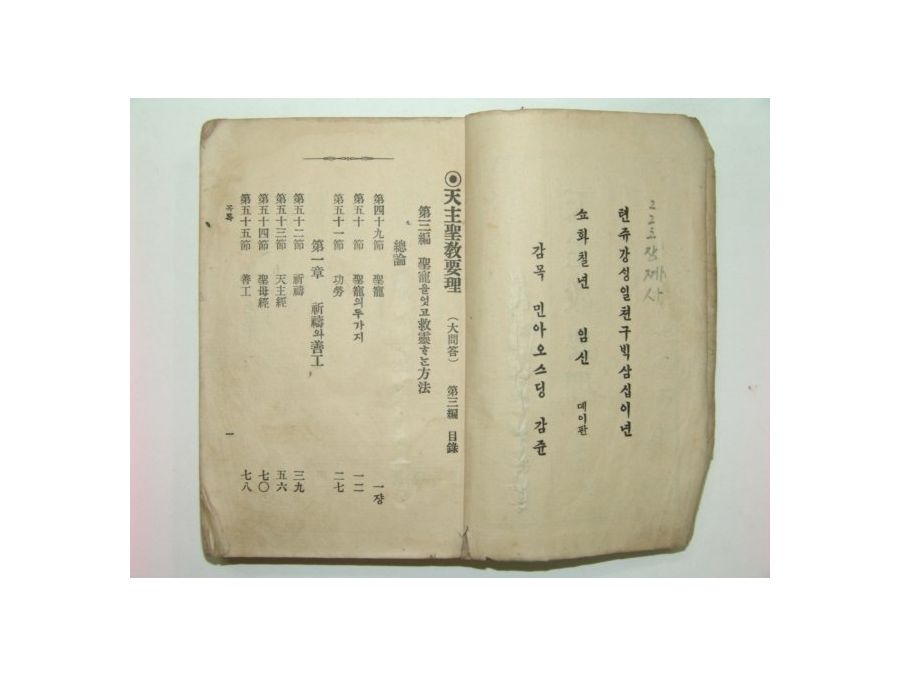 텬쥬강성일쳔구빅삼십이년
쇼화칠년 임신 뎨이판
감목 민아오스딩 감쥰
◉天主聖教要理 (大問答) 第三編 目錄
第三編 聖寵을엇고救靈ᄒᆞᄂᆞᆫ方法
總論
第四十九節 聖寵 一쟝
第五十節 聖寵의두가지 一二
第五十一節 功勞 二七
第一章 祈禱와善工
第五十二節 祈禱 三九
第五十三節 天主經 五六
第五十四節 聖母經 七〇
第五十五節 善工 七八
목록 一